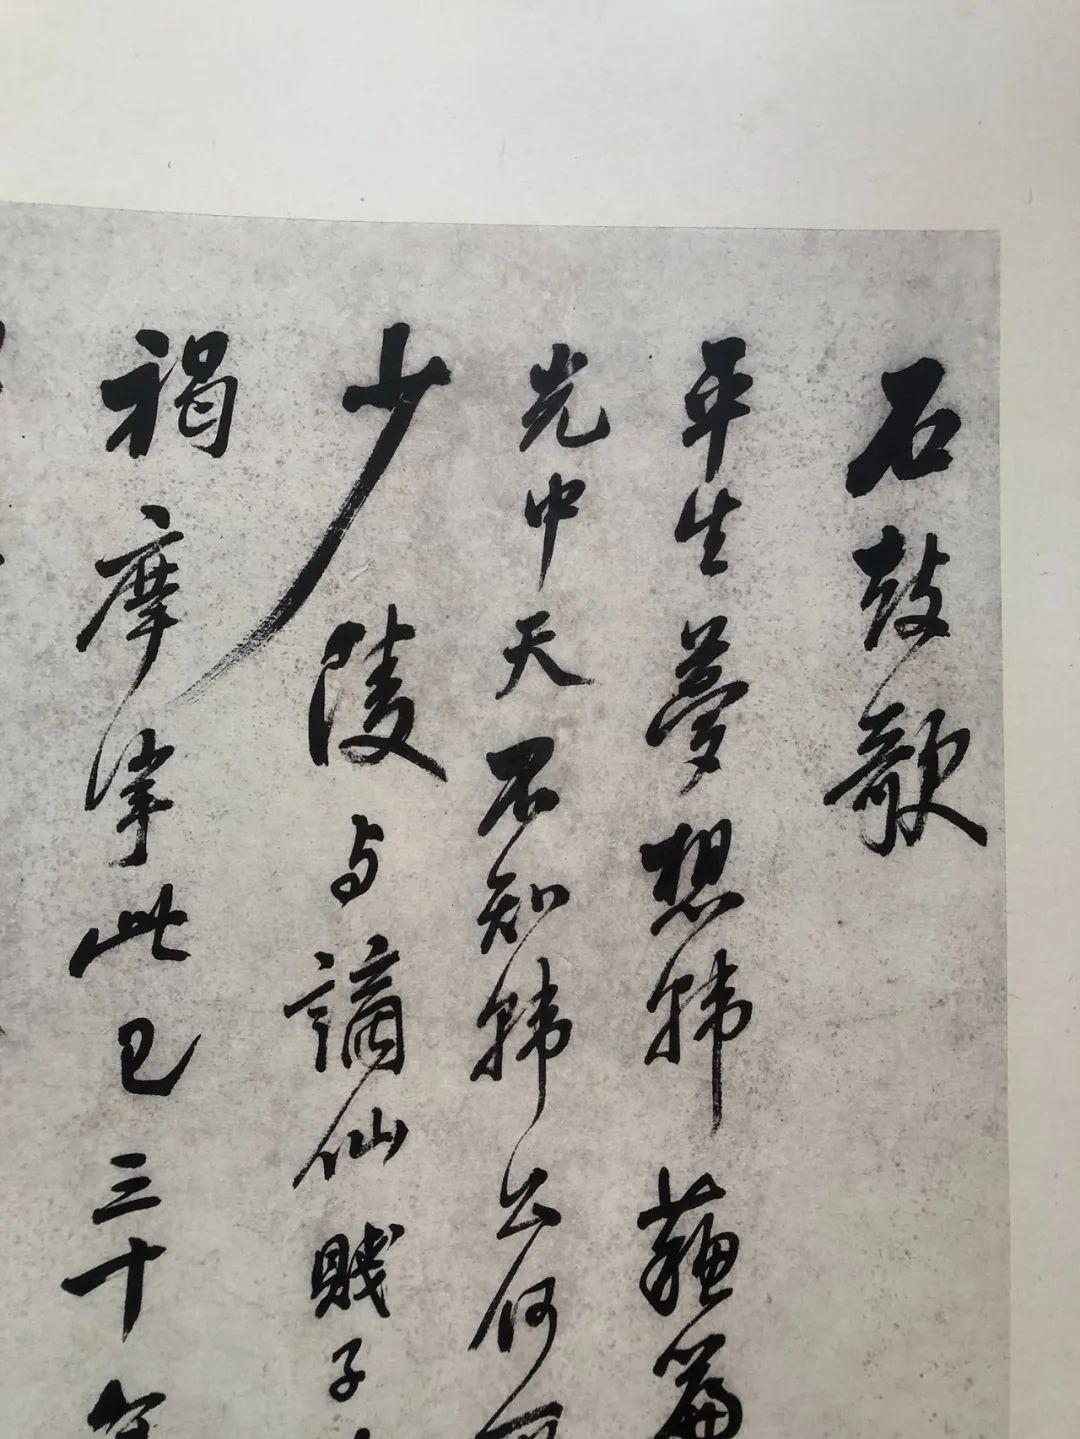 石鼓歌
平生夢想韓蘇篇
光中天不知韓公何
少陵与謫仙賤子
褐摩挲此已三十年